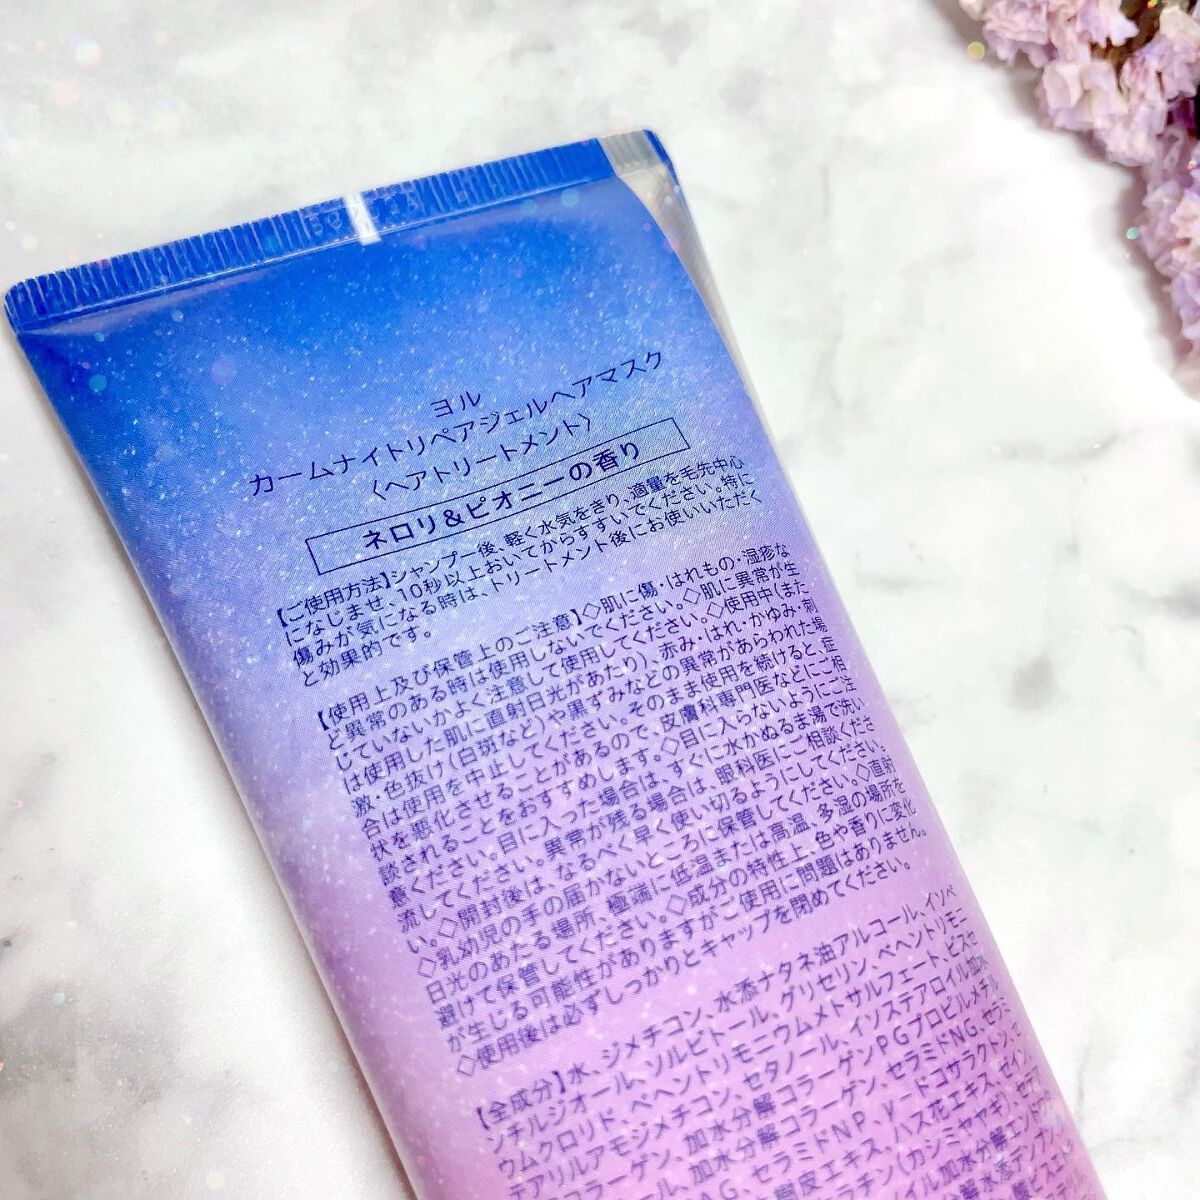 ヨル
カームナイトリペアジェルヘアマスク
〈ヘアトリートメント〉
ネロリ&ピオニーの香り
【ご使用方法】シャンプー後、軽く水気をきり、適量を毛先中心
になじませ、10秒以上おいてからすすいでください。特に
傷みが気になる時は、トリートメント後にお使いいただく
と効果的です。
【使用上及び保管上のご注意】◇肌に傷・はれもの・湿疹な
ど異常のある時は使用しないでください。◇肌に異常が生
じていないかよく注意して使用してください。◇使用中(また
は使用した肌に直射日光があたり)、赤み・はれ・かゆみ・刺
激・色抜け(白斑など)や黒ずみなどの異常があらわれた場
合は使用を中止してください。そのまま使用を続けると、症
状を悪化させることがあるので、皮膚科専門医などにご相
談されることをおすすめします。◇目に入らないようにご注
意ください。目に入った場合は、すぐに水かぬるま湯で洗い
流してください。異常が残る場合は、眼科医にご相談くださ
い。◇開封後は、なるべく早く使い切るようにしてください。
◇乳幼児の手の届かないところに保管してください。◇直射
日光のあたる場所、極端に低温または高温、多湿の場所を
避けて保管してください。◇成分の特性上、色や香りに変化
が生じる可能性がありますがご使用に問題はありません。
◇使用後は必ずしっかりとキャップを閉めてください。
【全成分】水、ジメチコン、水添ナタネ油アルコール、イソペ
ンチルジオール、ソルビトール、グリセリン、ベヘントリモニ
ウムクロリド、ベヘントリモニウムメトサルフェート、ビスセ
テアリルアモジメチコン、セタノール、イソステアロイル加水
コラーゲン、加水分解コラーゲンPGプロピルメチル
加水分解コラーゲン、セラミドNG、セラミ
AG、セラミドNP、
エキス、ハス花エキス、
ラチン(カシミヤヤギ)、